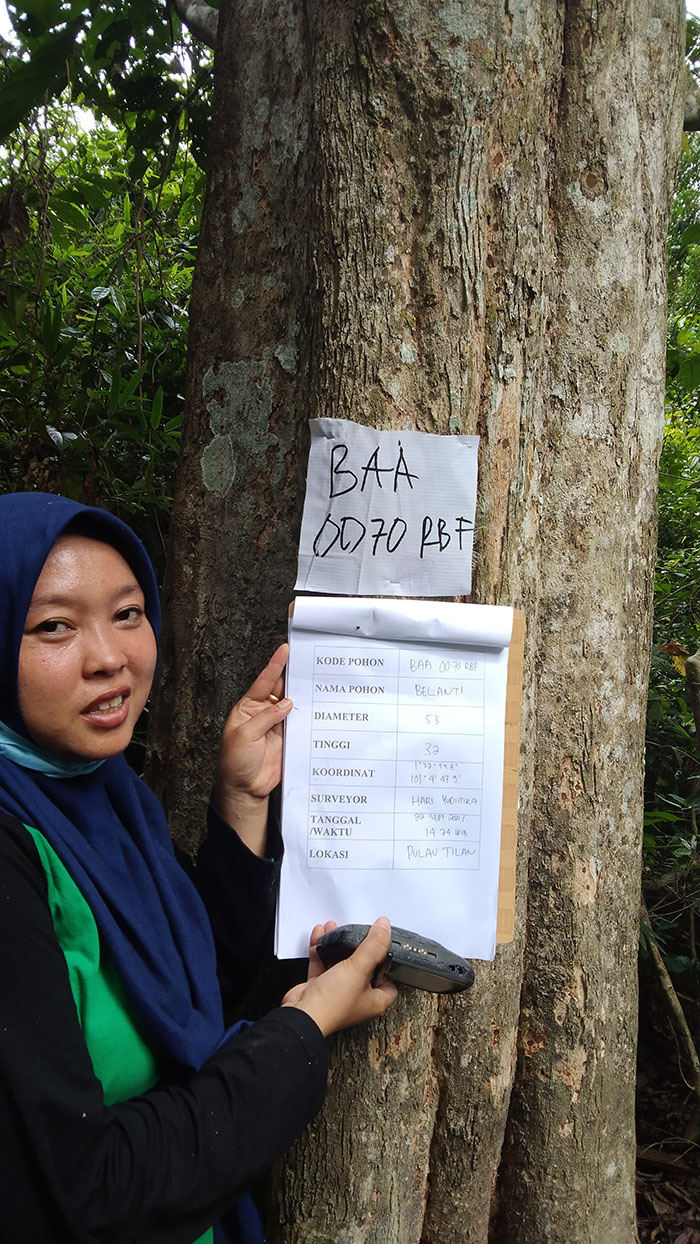 BAA
0070 RBF
KODE POHON BAA 0070 RBF
NAMA POHON BELANTI
DIAMETER 53
TINGGI 32
KOORDINAT
SURVEYOR HARI YUDISTIRA
TANGGAL
/WAKTU 14 24 WIB
LOKASI PULAU TILAN